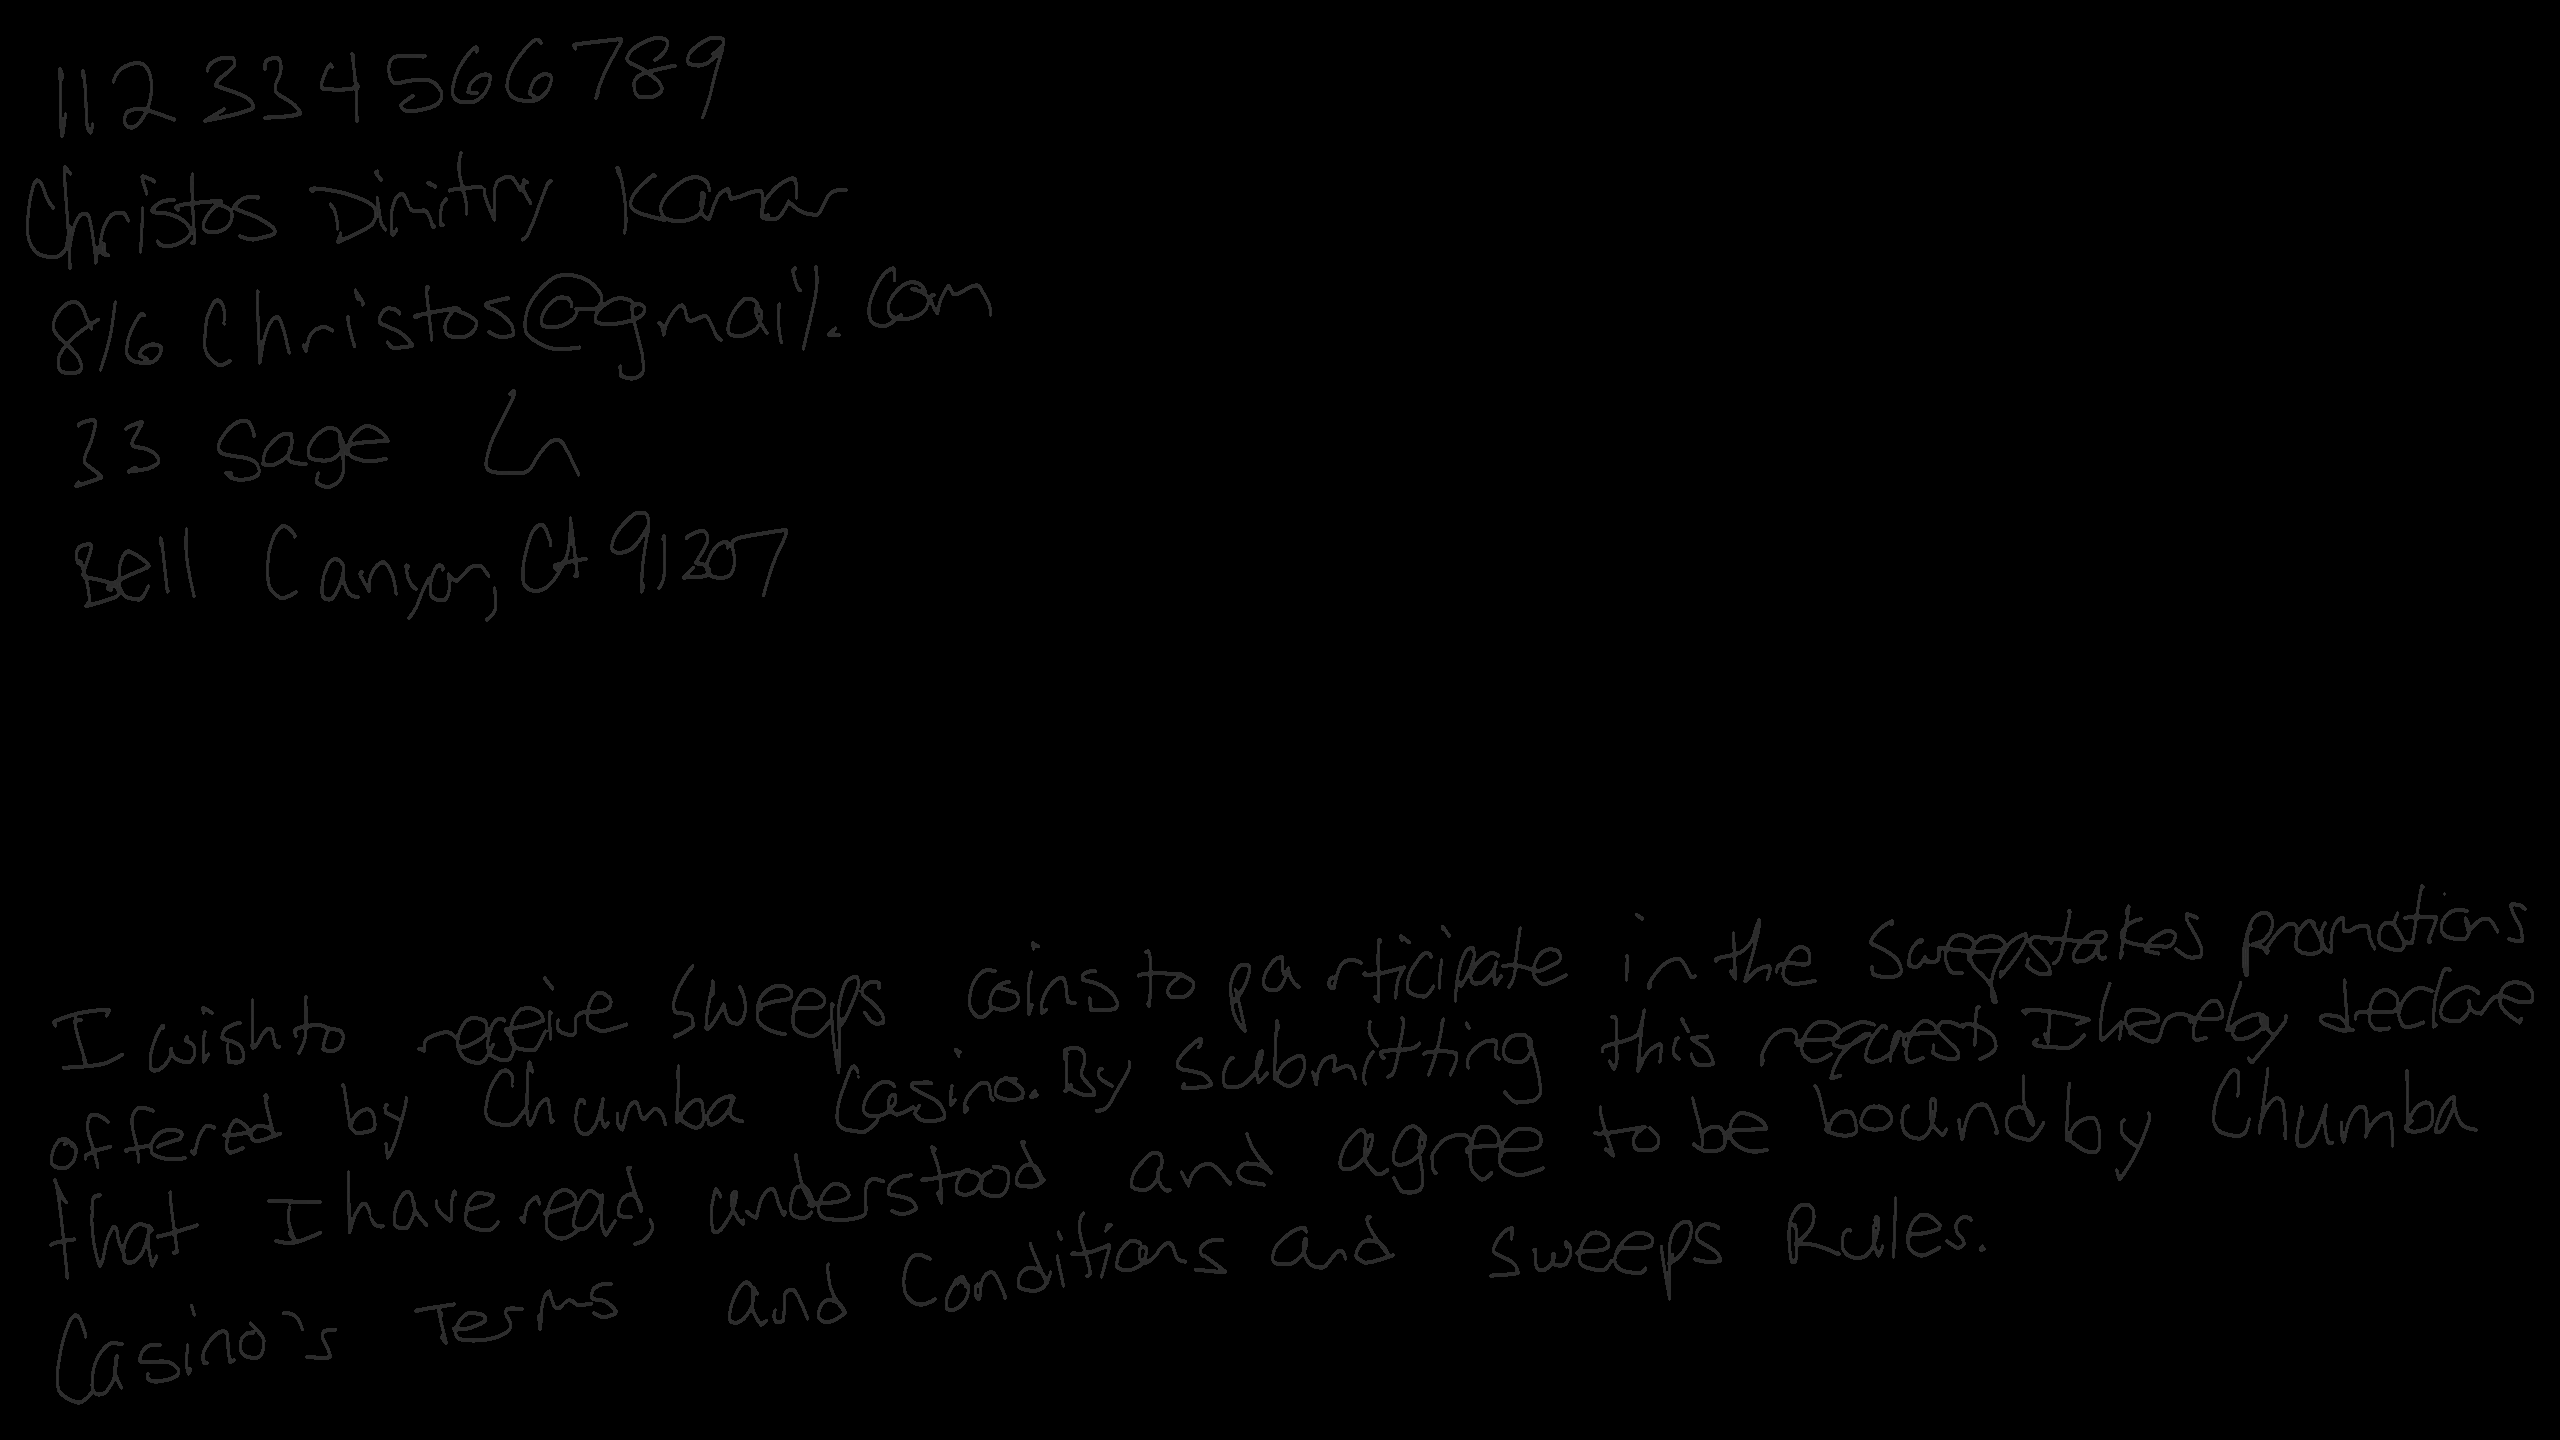 112 334566789
Christos Dimitry Kamar
816 Christos@gmail.com
33 Sage Ln
Bell Canyon, CA 91307
I wish to receive sweeps coins to participate in the Sweepstakes promotions
offered by Chumba Casino. By submitting this request, I hereby declare
that I have read, understood and agree to be bound by Chumba
Casino's Terms and Conditions and Sweeps Rules.